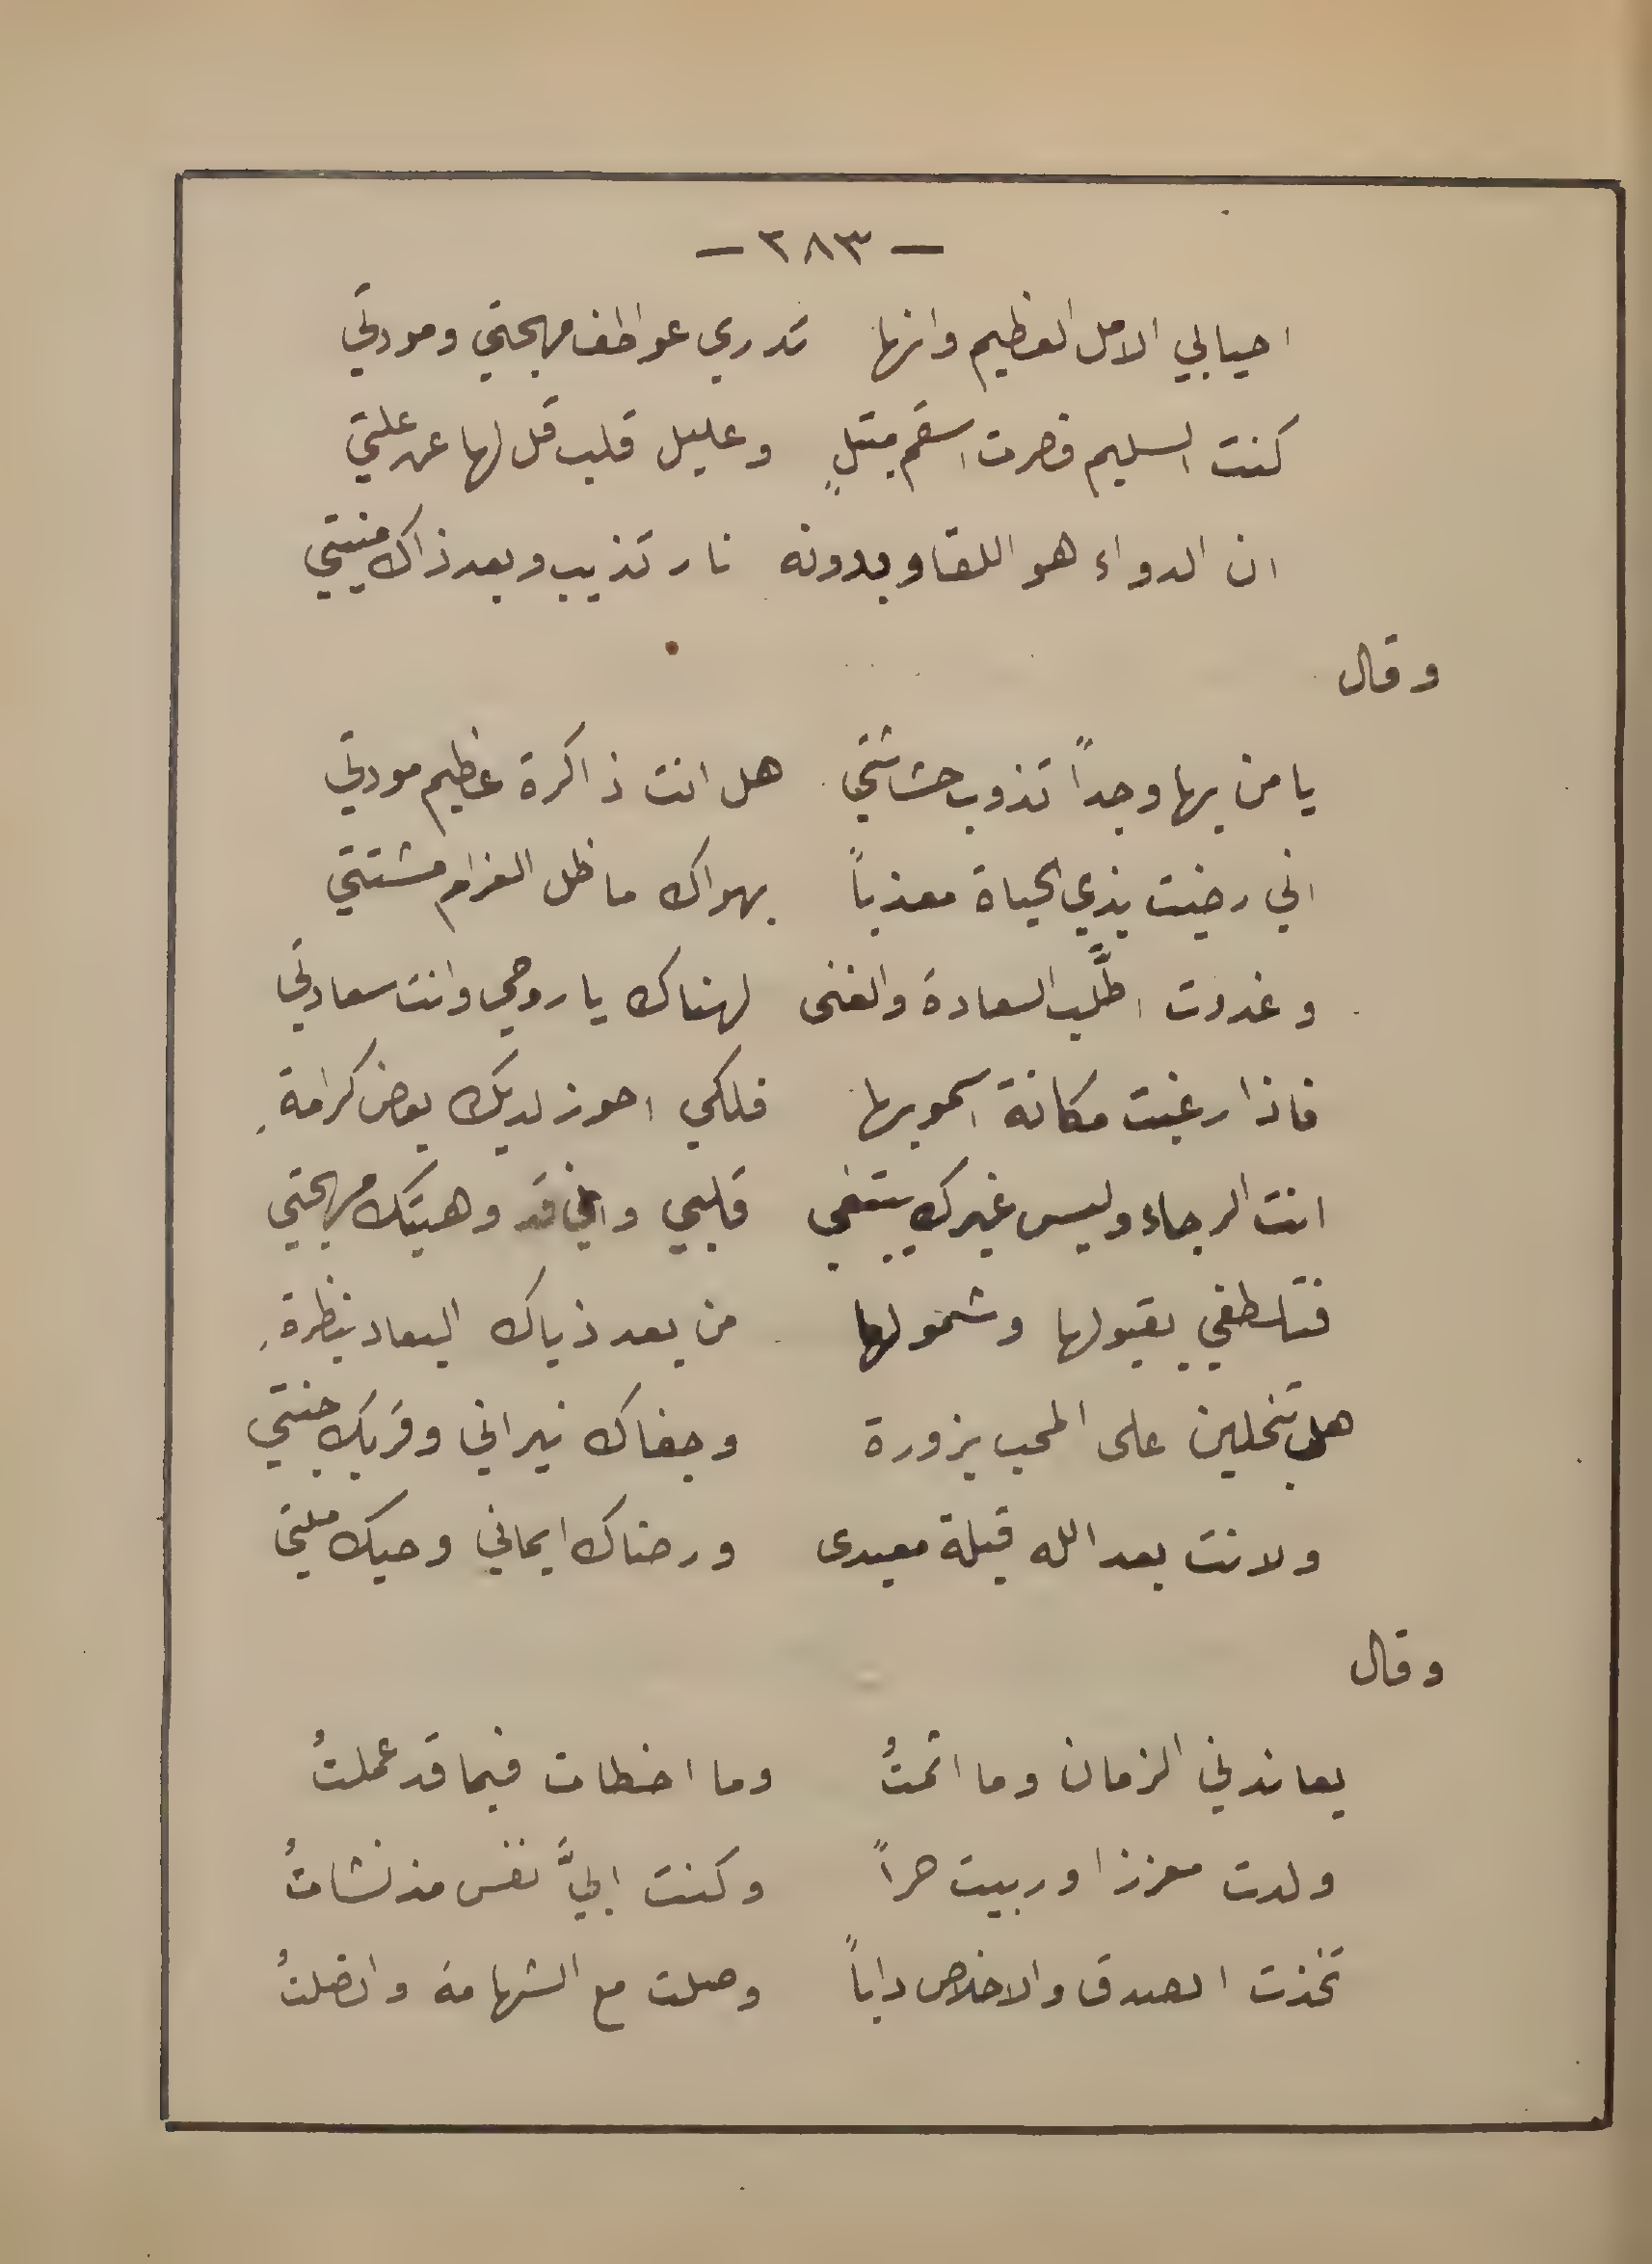 — ٢٨٣ —
احيا بي الامل العظيم وانها تدري عواطف مهجتي ومودتي
كنت السليم فصرت اسقم مبتلٍ وعليل قلب قل لها عن علتي
ان الدواء هو اللقا وبدونه نار تذيب وبعد ذاك منيتي
وقال
يا من بها وجداً تذوب حشاشتي هل انت ذاكرة عظيم مودتي
اني رضيت بذي الحياة معذباً بهواك ما ظل الغرام مشتتي
وغدوت اطَّلب السعادة والغنى لهناك يا روحي وانت سعادتي
فاذا رغبت مكانة اسمو بها فلكي احوز لديك بعض كرامةِ
انت الرجاء وليس غيرك يبتغي قلبي واني قد وهبتك مهجتي
فتلطفي بقبولها وشمولها من بعد ذياك البعاد بنظرةِ
هل تبخلين على المحب بزورة وجفاك نيراني وقربك جنتي
ولانت بعد الله قبلة معبدى ورضاك ايماني وحبك ملتي
وقال
يعاندني الزمان وما اثمتُ وما اخطات فيما قد عملتُ
ولدت معززا وربيت حراً وكنت ابيَّ نفس مذ نشاتُ
تخذت الصدق والاخلاص داباً وصلت مع الشهامة واتصلتُ